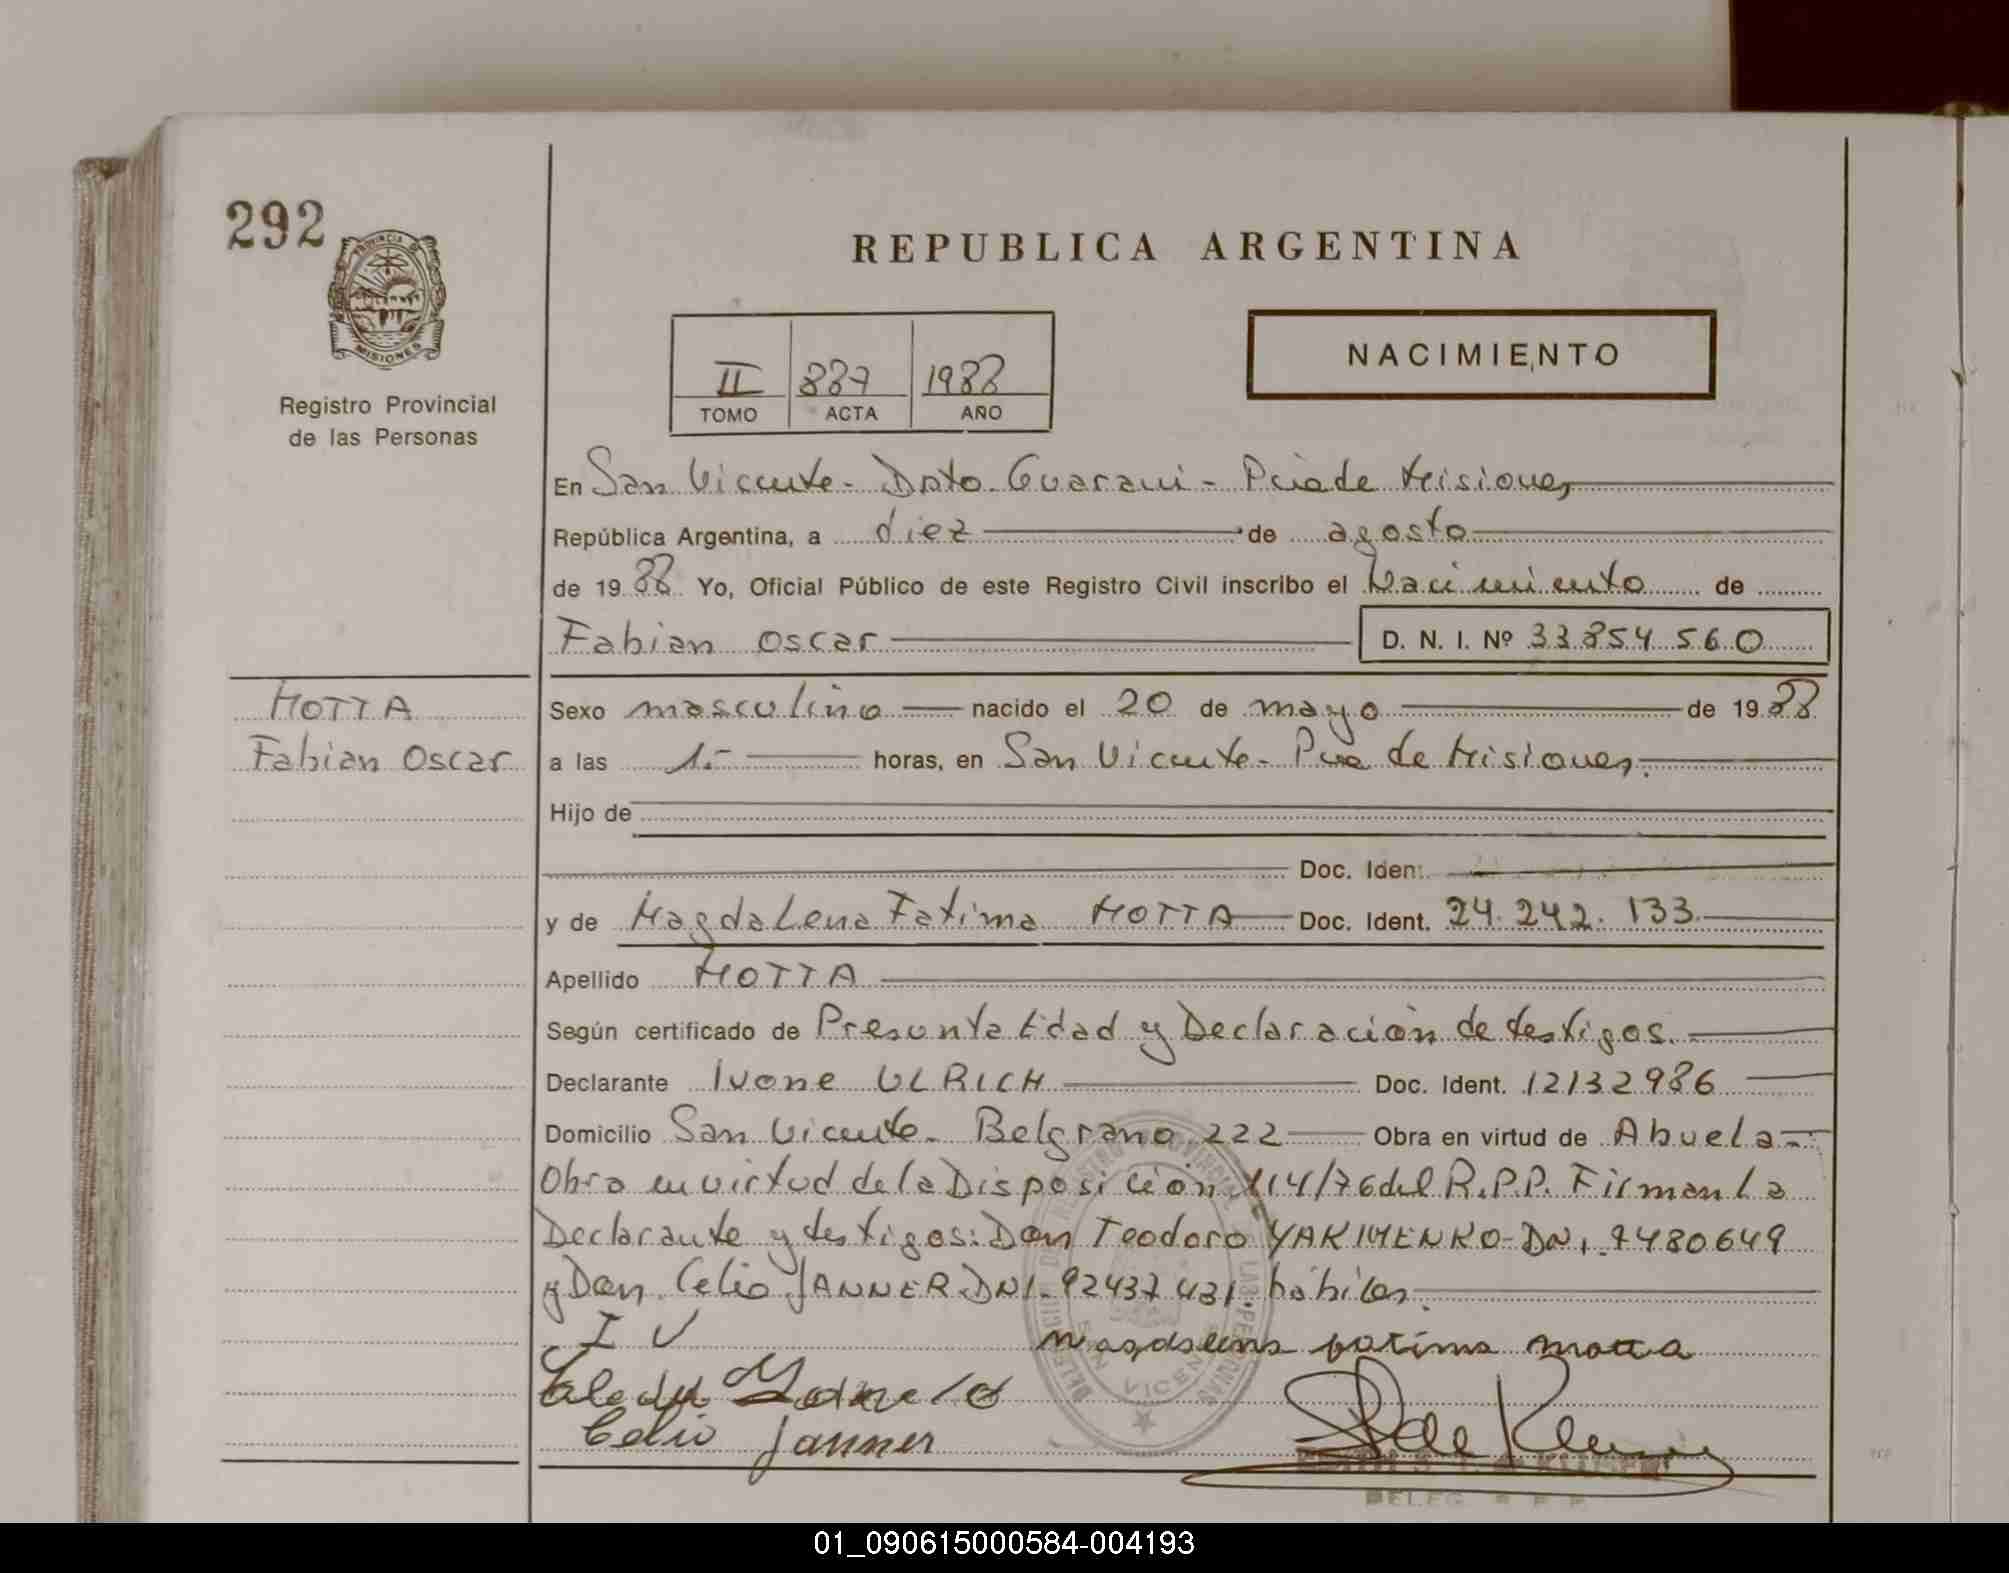 292
PROVINCIA DE
MISIONES
Registro Provincial
de las Personas
REPUBLICA ARGENTINA
II 887 1988
TOMO ACTA AÑO
NACIMIENTO
En San Vicente - Dpto. Guarani - Pcia de Misiones
República Argentina, a diez de agosto
de 1988 Yo, Oficial Público de este Registro Civil inscribo el Nacimiento de
Fabian Oscar D. N. I. Nº 33.854.560
MOTTA
Fabian Oscar
Sexo masculino nacido el 20 de mayo de 1988
a las 1.- horas, en San Vicente - Pcia de Misiones.
Hijo de
Doc. Ident.
y de Magdalena Fatima MOTTA Doc. Ident. 24.242.133
Apellido MOTTA
Según certificado de Presunta Edad y Declaración de testigos.
Declarante Ivone ULRICH Doc. Ident. 12132986
Domicilio San Vicente - Belgrano 222 Obra en virtud de Abuela -
Obra en virtud de la Disposición 114/76 del R.P.P. Firman la
Declarante y testigos: Don Teodoro YAKIMENKO - DNI. 7480649
y Don Celio JANNER DNI. 92437431. hábiles.
I U
Magdalena Fatima Motta
Celio Janner
DELEG. R. P. P.
01_090615000584-004193